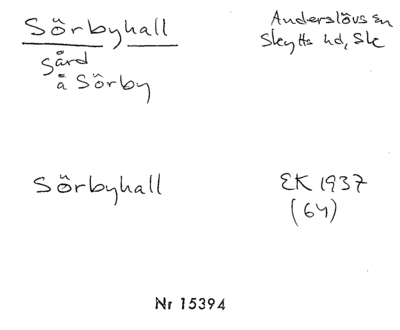 Sörbyhall
gård
å Sörby
Anderslövs sn
Skytts hd, Sk
Sörbyhall
EK 1937
(64)
Nr 15394